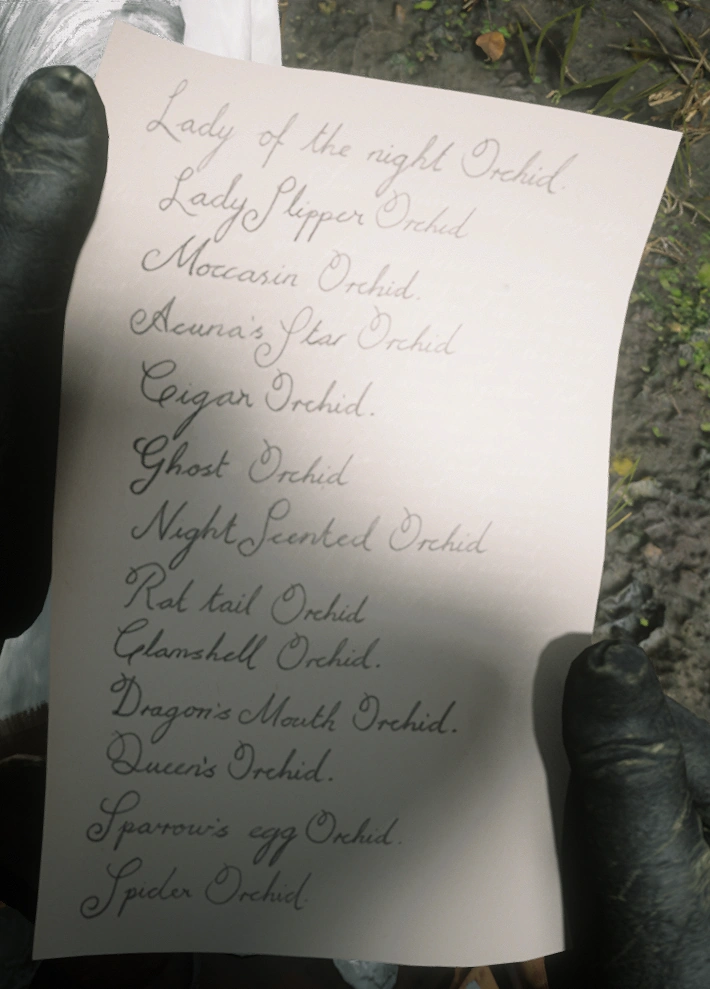 Lady of the night Orchid.
Lady Slipper Orchid
Moccasin Orchid.
Acuna's Star Orchid
Cigar Orchid.
Ghost Orchid
Night Scented Orchid
Rat tail Orchid
Clamshell Orchid.
Dragon's Mouth Orchid.
Queen's Orchid.
Sparrow's egg Orchid.
Spider Orchid.